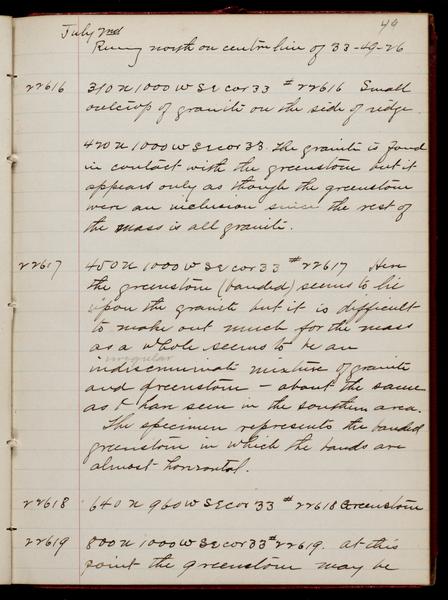 49
July 2nd
Runing north on centre line of 33-49-26
22616 310 N 1000 W SE cor 33 # 22616 Small
outcrop of granite on the side of ridge.
420 N 1000 W SE cor 33. The granite is found
in contact with the greenstone but it
appears only as though the greenstone
were an inclusion since the rest of
the mass is all granite.
22617 450 N 1000 W SE cor 33 # 22617 Here
the greenstone (banded) seems to lie
upon the granite but it is difficult
to make out much for the mass
as a whole seems to be an
irregular
indiscriminate mixture of granite
and greenstone - about the same
as I han seen in the southern area.
The specimen represents the banded
greenstone in which the bands are
almost horizontal.
22618 640 N 960 W SE cor 33 # 22618 Greenstone
22619 800 N 1000 W SE cor 33 # 22619. At this
point the greenstone may be